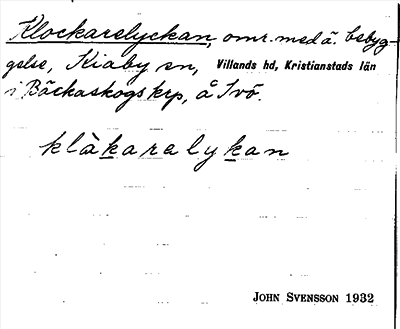 Klockarelyckan, omr. med ä. bebyg-
gelse, Kiaby sn, Villands hd, Kristianstads län
i Bäckaskogs krp, å Ivö.
klàkarelykan
JOHN SVENSSON 1932